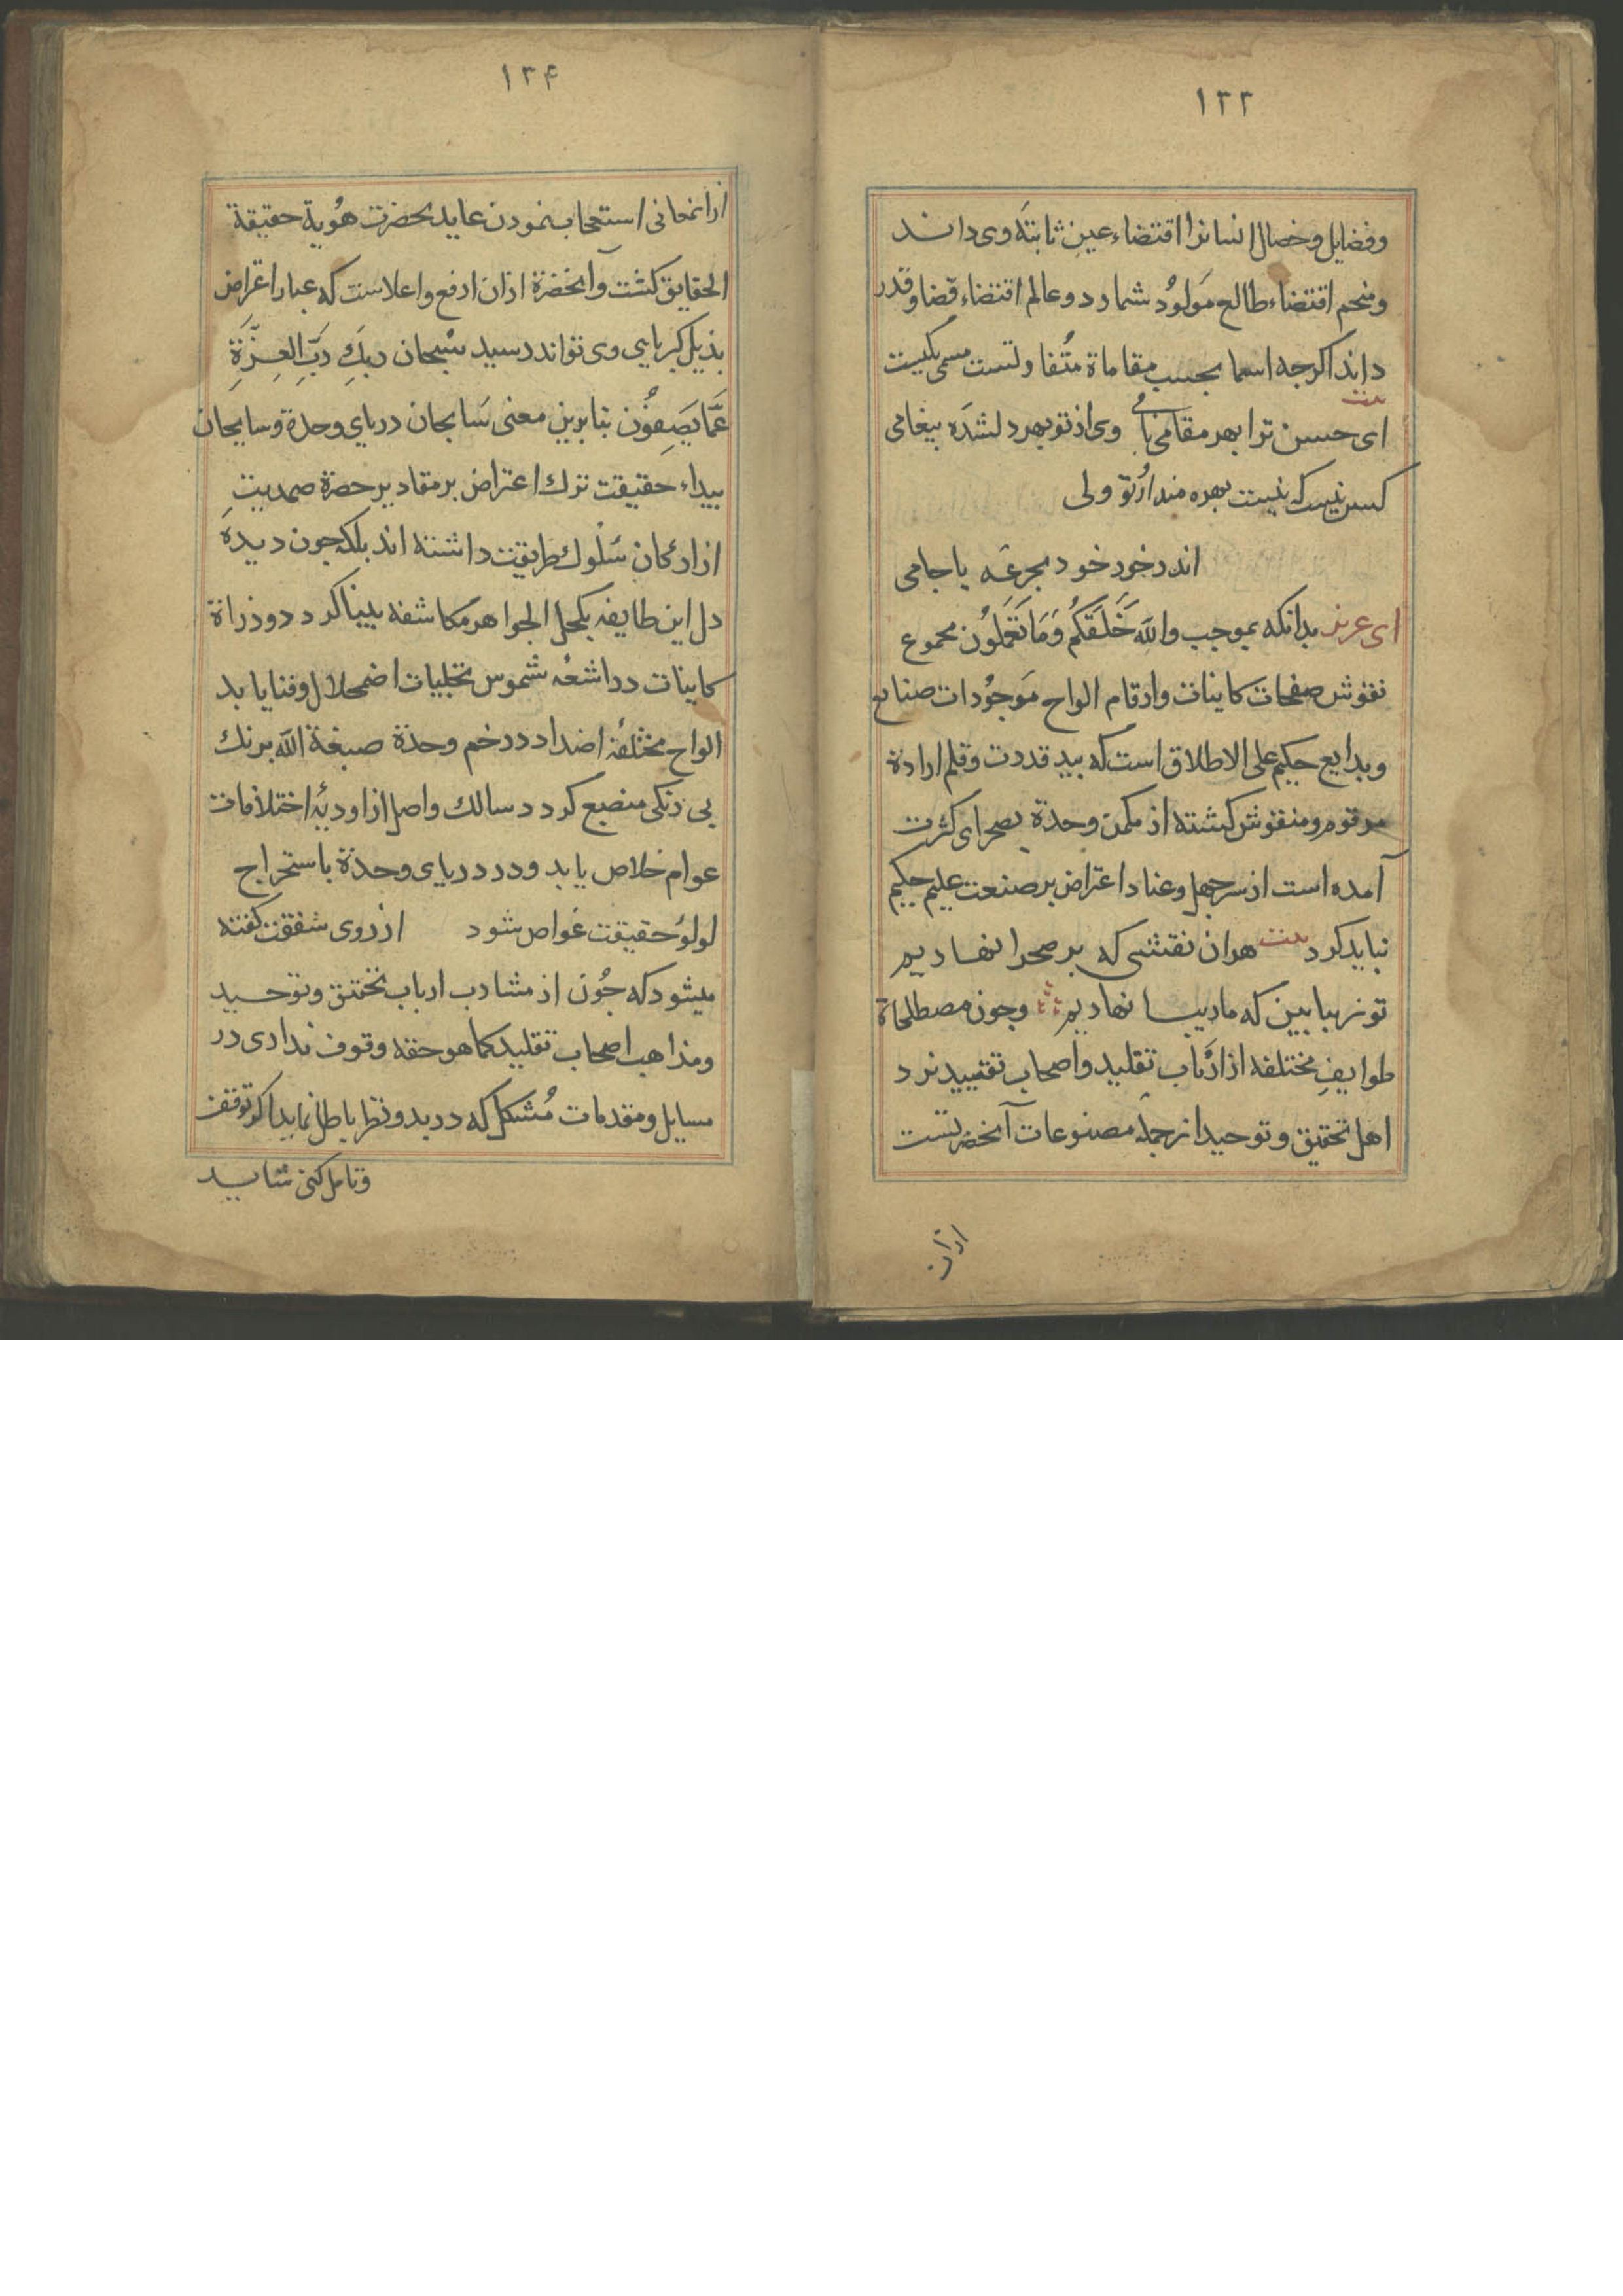 ۱۳۳
وفضایل وخصال انسانرا اقتضاء عینِ ثابتَه وی داند
ومنجم اقتضاء طالع مَولوُد شمارد وعالم اقتضاء قضا وقدر
داند اکرجه اسما بحسب مقاماة مُتفاوتست مسمی یکیست
بیت
ای حسن ترا بهر مقامی نامی وی از تو بهر دلشدَه بیغامی
کس نیست که نیست بهره مند از تو ولی
اندر خور خود بجرعَه یا جامی
ای عزیز بدانکه بموجب واللّه خَلَقَکُم وَمَا تَعمَلوُن مجموع
نقوش صفحات کاینات وارقام الواح مَوجوُدات صنایع
وبدایع حکیم علی الاطلاق است که بید قدرت وقلم ارادة
مرقوم ومنقوش کشته از مکمن وحدة بصحرای کثرت
آمده است از سر جهل وعناد اعتراض بر صنعت علیم حکیم
نباید کرد بیت هران نقشی که بر صحرا نهادیم
تو زیبا بین که ما زیبا نهادیم وجون مصطلحاة
طوایفِ مختلفه از ارَباب تقلید واصحاب تقیید نزد
اهل تحقیق وتوحید از جمله مصنوعات آنحضرتست
ازان
۱۳۴
ازانجا نی استعجاب نمودن عاید بحضرت هوُیة حقیقة
الحقایق کشت وآنحضرة ازان ارفع واعلاست که غبار اعتراض
بذیل کبریایی وی تواند رسید سُبحان ربکَِ رَبِّ العِزَّةِ
عَمَّا یَصِفوُن بنا برین معنی سَابحان دریای وحدة وسایحان
بیداء حقیقت ترك اعتراض بر مقادیر حضرة صمدیتِ
از ارکان سُلوك طریقت داشته اند بلکه جون دیدهَ
دل این طایفه بکحل الجواهر مکاشفه بینا کردد وذراة
کاینات در اشعُه شموس تجلیات اضمحلال وفنا یابد
الواح مختلفهٔ اضداد در خم وحدة صبغة اللّه برنك
بی رنکی منصبع کردد سالك واصل از اودیهٔ اختلافات
عوام خلاص یابد ودر دریای وحدة باستخراج
لولؤ حقیقت غواص شود از روی شفقت کفته
میشود که جوُن از مشارب ارباب تحقیق وتوحید
ومذاهب اصحاب تقلید کما هو حقه وقوف نداری در
مسایل ومقدمات مُشکل که در بدو نظر باطل نماید اکر توقف
وتامل کنی شاید